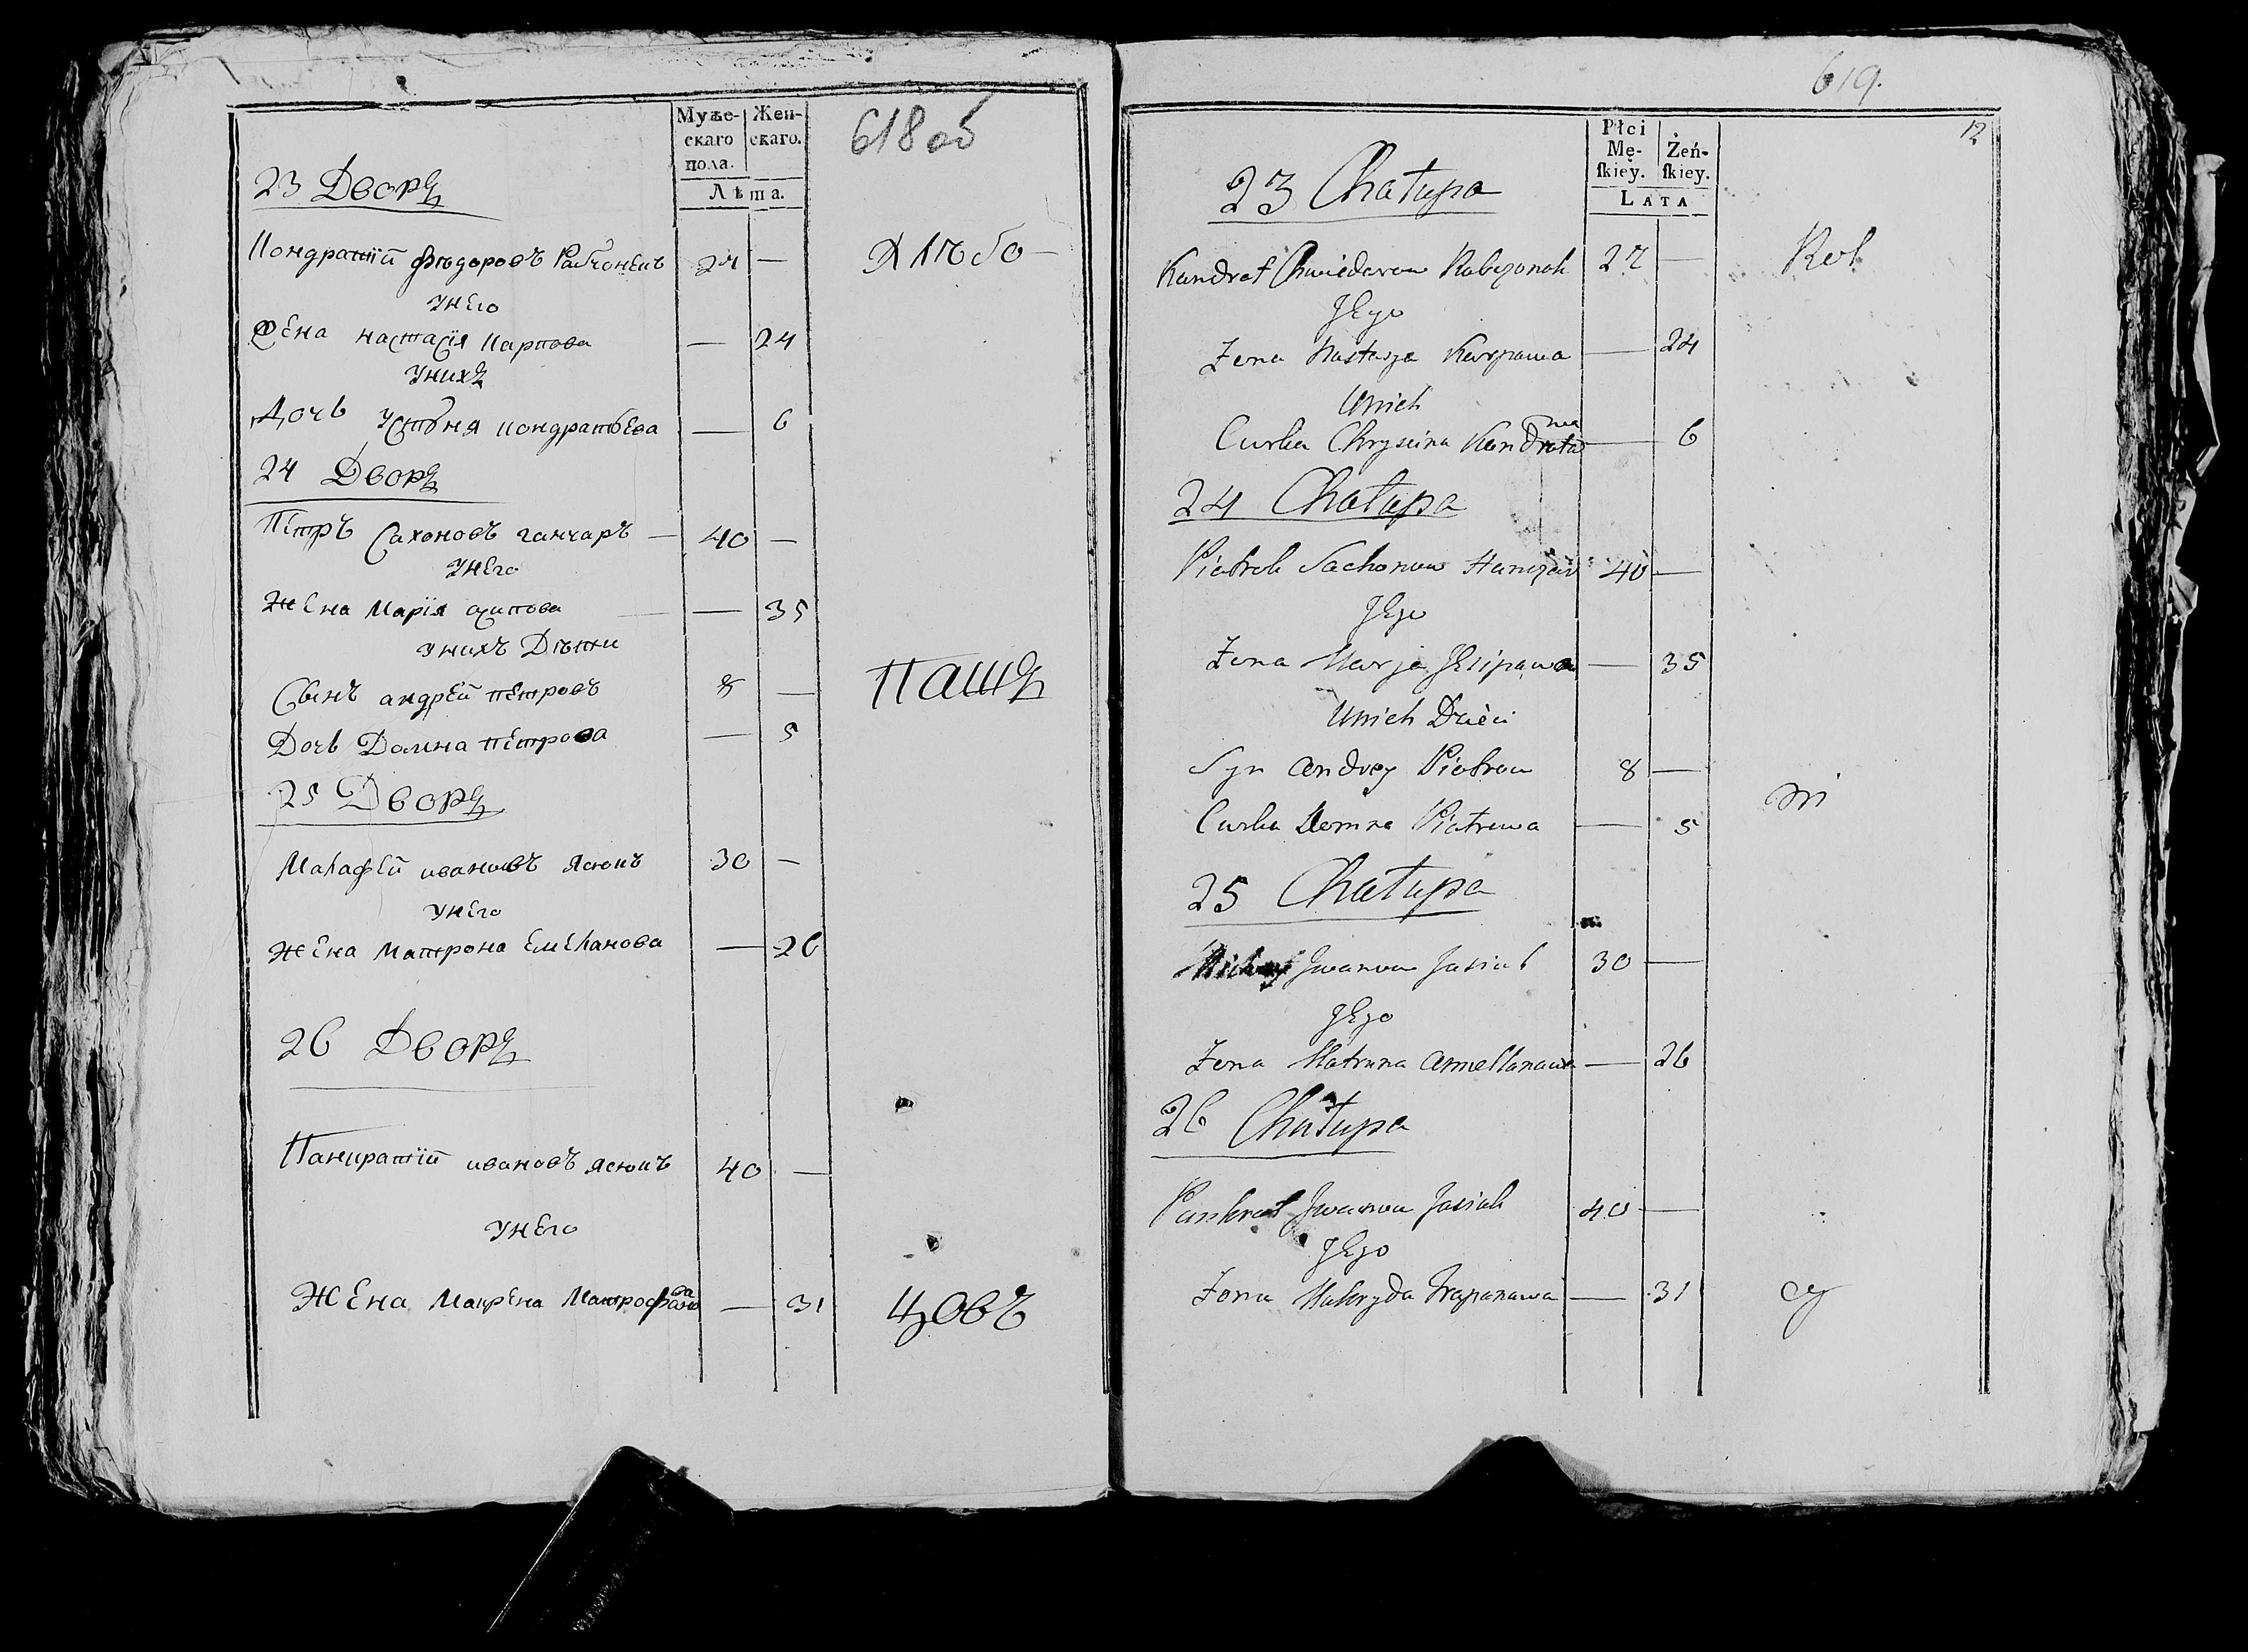 Муже-
скаго
пола.
Жен-
скаго.
Лѣта.
618 об
23 Дворъ
Кондратїй Ѳѣдоровъ Рабчонекъ 27 —
Хлѣбо-
унего
Жена настасїя карпова — 24
унихъ
Дочь Устиня кондратьева — 6
24 Дворъ
Пётръ Сахоновъ ганчаръ — 40 —
унего
Жена Марїя осипова — 35
унихъ Дѣти
Сынъ андрей петровъ 8 —
пашъ
Дочь Домна петрова — 5
25 Дворъ
Малафей ивановъ ясюкъ 30 —
унего
жена матрона емеланова — 26
26 Дворъ
Панкратїй ивановъ ясюкъ 40 —
унего
Жена Макрена Митрофанова — 31
цовъ
619.
12
Płci
Mę-
skiey.
Żeń-
skiey.
LATA
23 Chałupa
Kandrat Chwiedorow Rabczonok 27 —
Rol
Jego
Zona Nastazja Karpawa — 24
Unich
Curka Chryscina Kandratowna — 6
24 Chałupa
Piatrok Sachonow Hanczar 40 —
Jego
Zona Marja Jesipawa — 35
Unich Dzieci
Syn Andrey Piotrow 8 —
ni
Curka Domna Piatrowa — 5
25 Chałupa
Iwanow Jasiuk 30 —
Jego
Zona Matruna Amellanawa — 26
26 Chałupa
Pankrat Iwanow Jasiuk 40 —
Jego
Zona Makryda Trapanawa — 31
cy